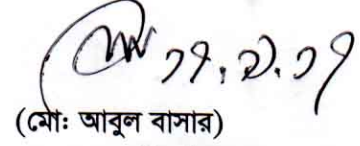 ১৭.১.১৭
(মোঃ আবুল বাসার)